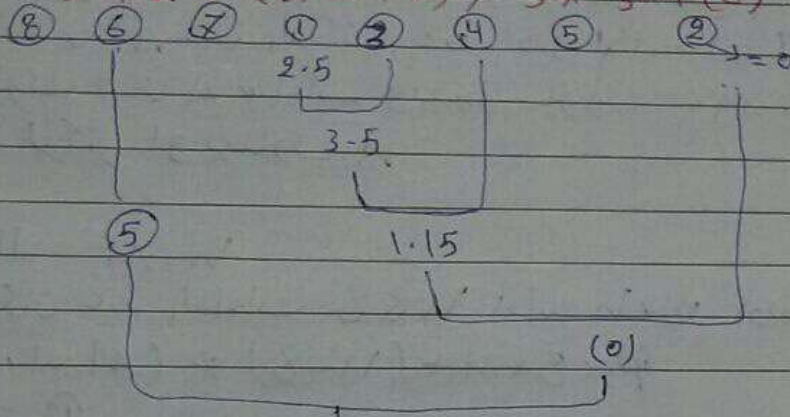 ⑧ ⑥ ⑦ ① ③ ④ ⑤ ②
2.5
3-5
⑤ 1.15
(0)